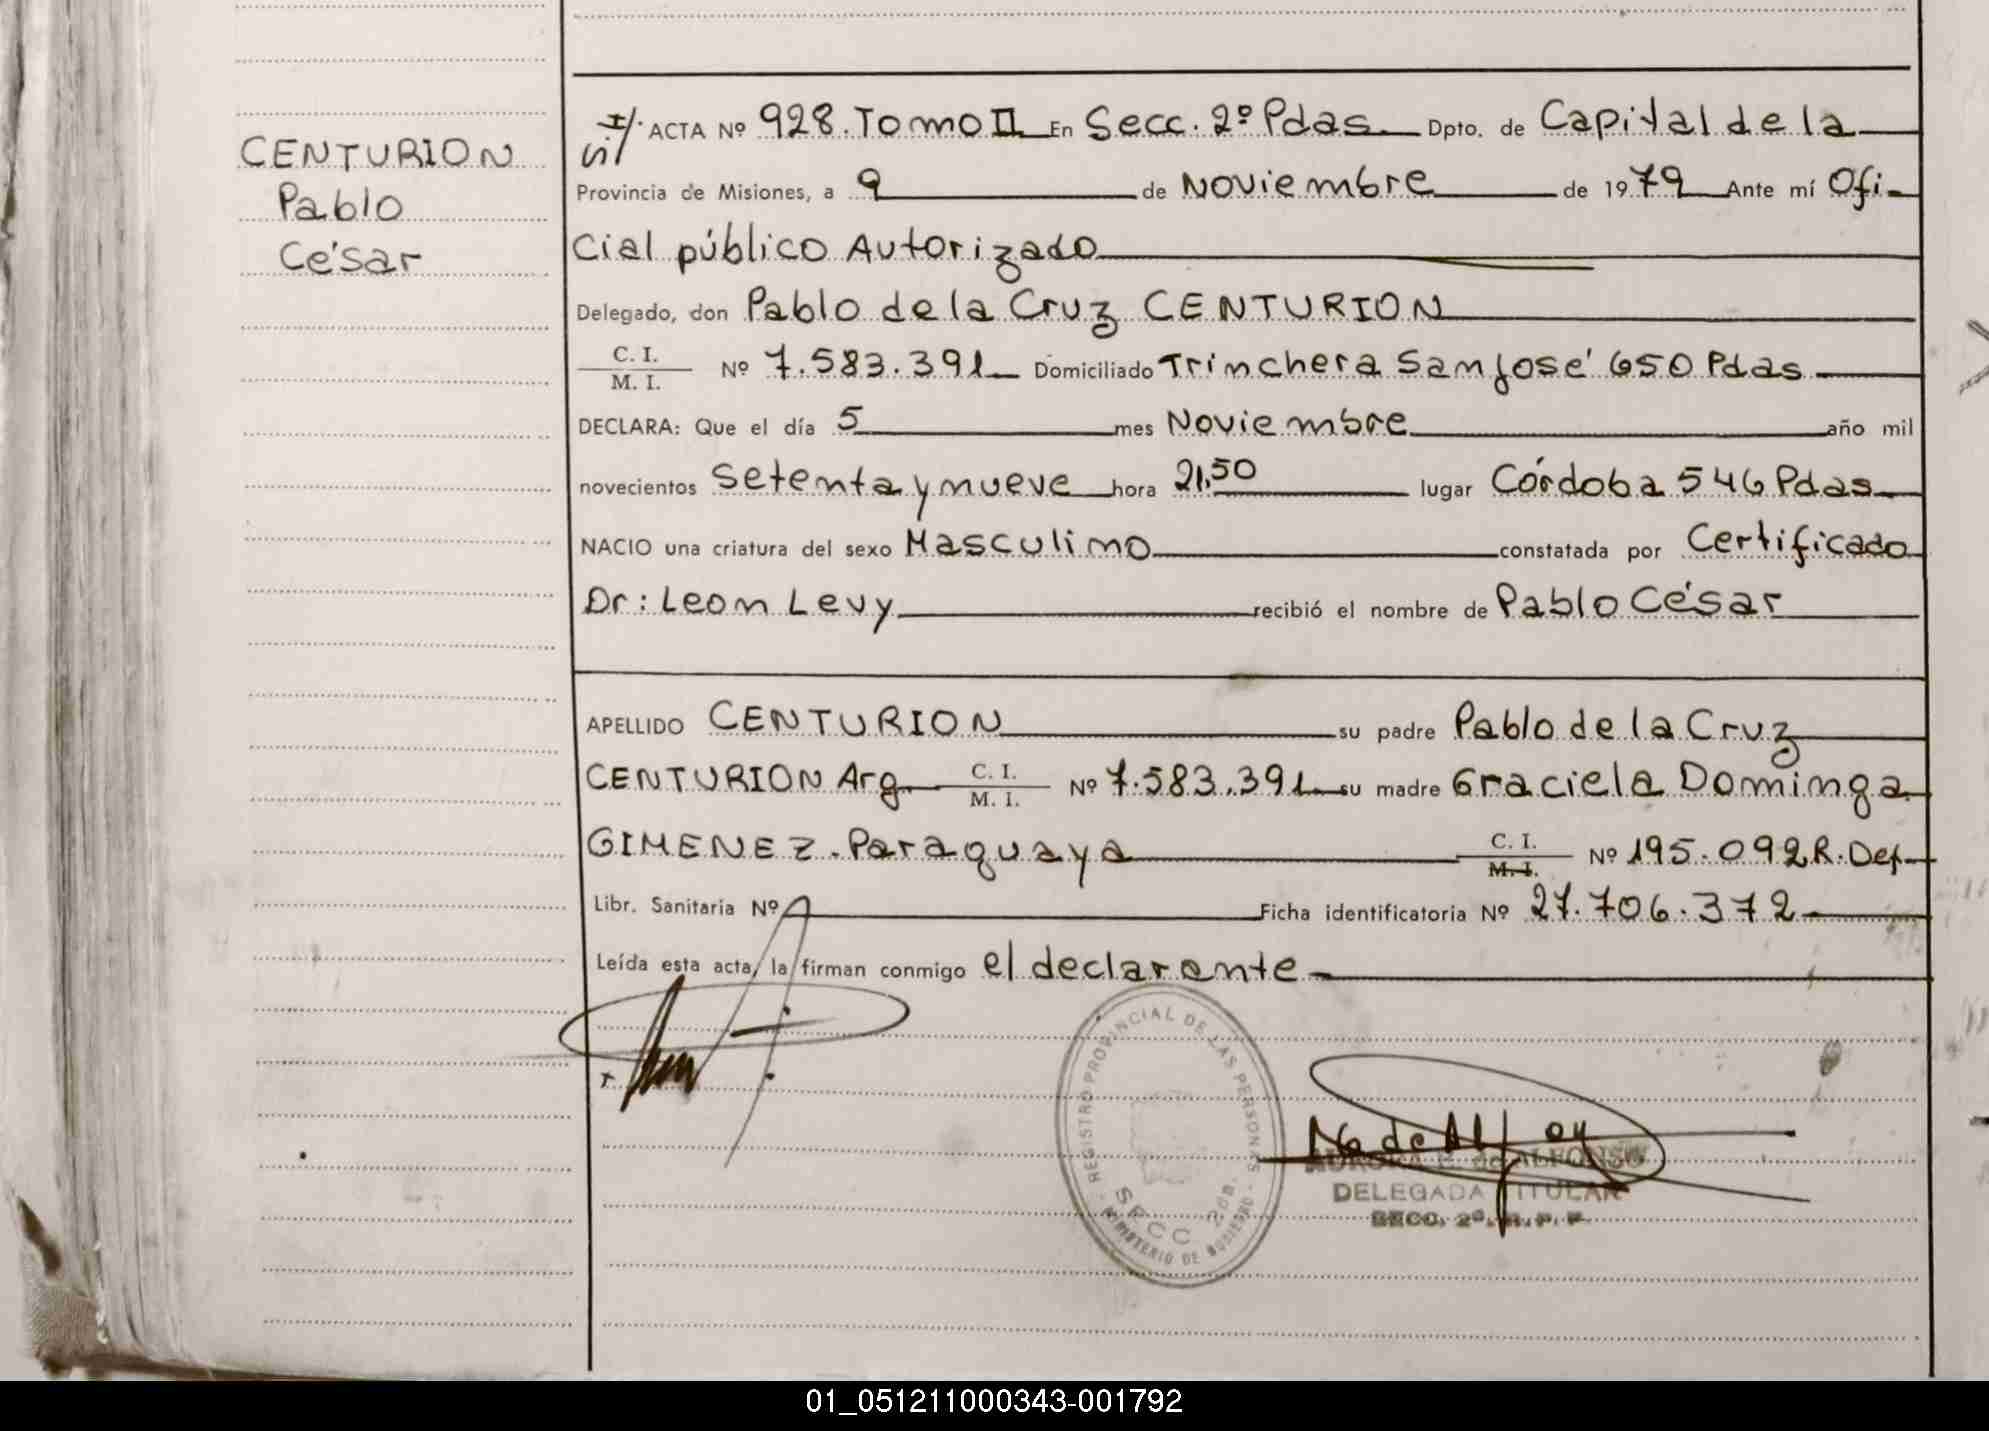 CENTURION
Pablo
César
ACTA Nº 928. Tomo II En Secc. 2º Pdas Dpto. de Capital de la
Provincia de Misiones, a 9 de Noviembre de 1979 Ante mí Ofi-
cial público Autorizado
Delegado, don Pablo de la Cruz CENTURION
C. I.
M. I. Nº 7.583.391 Domiciliado Trinchera San José 650 Pdas
DECLARA: Que el día 5 mes Noviembre año mil
novecientos setenta y nueve hora 21,50 lugar Córdoba 546 Pdas
NACIO una criatura del sexo Masculino constatada por Certificado
Dr: Leon Levy recibió el nombre de Pablo César
APELLIDO CENTURION su padre Pablo de la Cruz
CENTURION Arg C. I. M. I. Nº 7.583.391 su madre Graciela Dominga
GIMENEZ. Paraguaya C. I. M. I. Nº 195.092 R. Def
Libr. Sanitaria Nº Ficha identificatoria Nº 27.706.372
Leída esta acta, la firman conmigo el declarante
REGISTRO PROVINCIAL DE LAS PERSONAS
SECC 2da.
MINISTERIO DE GOBIERNO
AURORA de ALFONSO
DELEGADA TITULAR
SECC. 2ª. R. P. P.
01_051211000343-001792